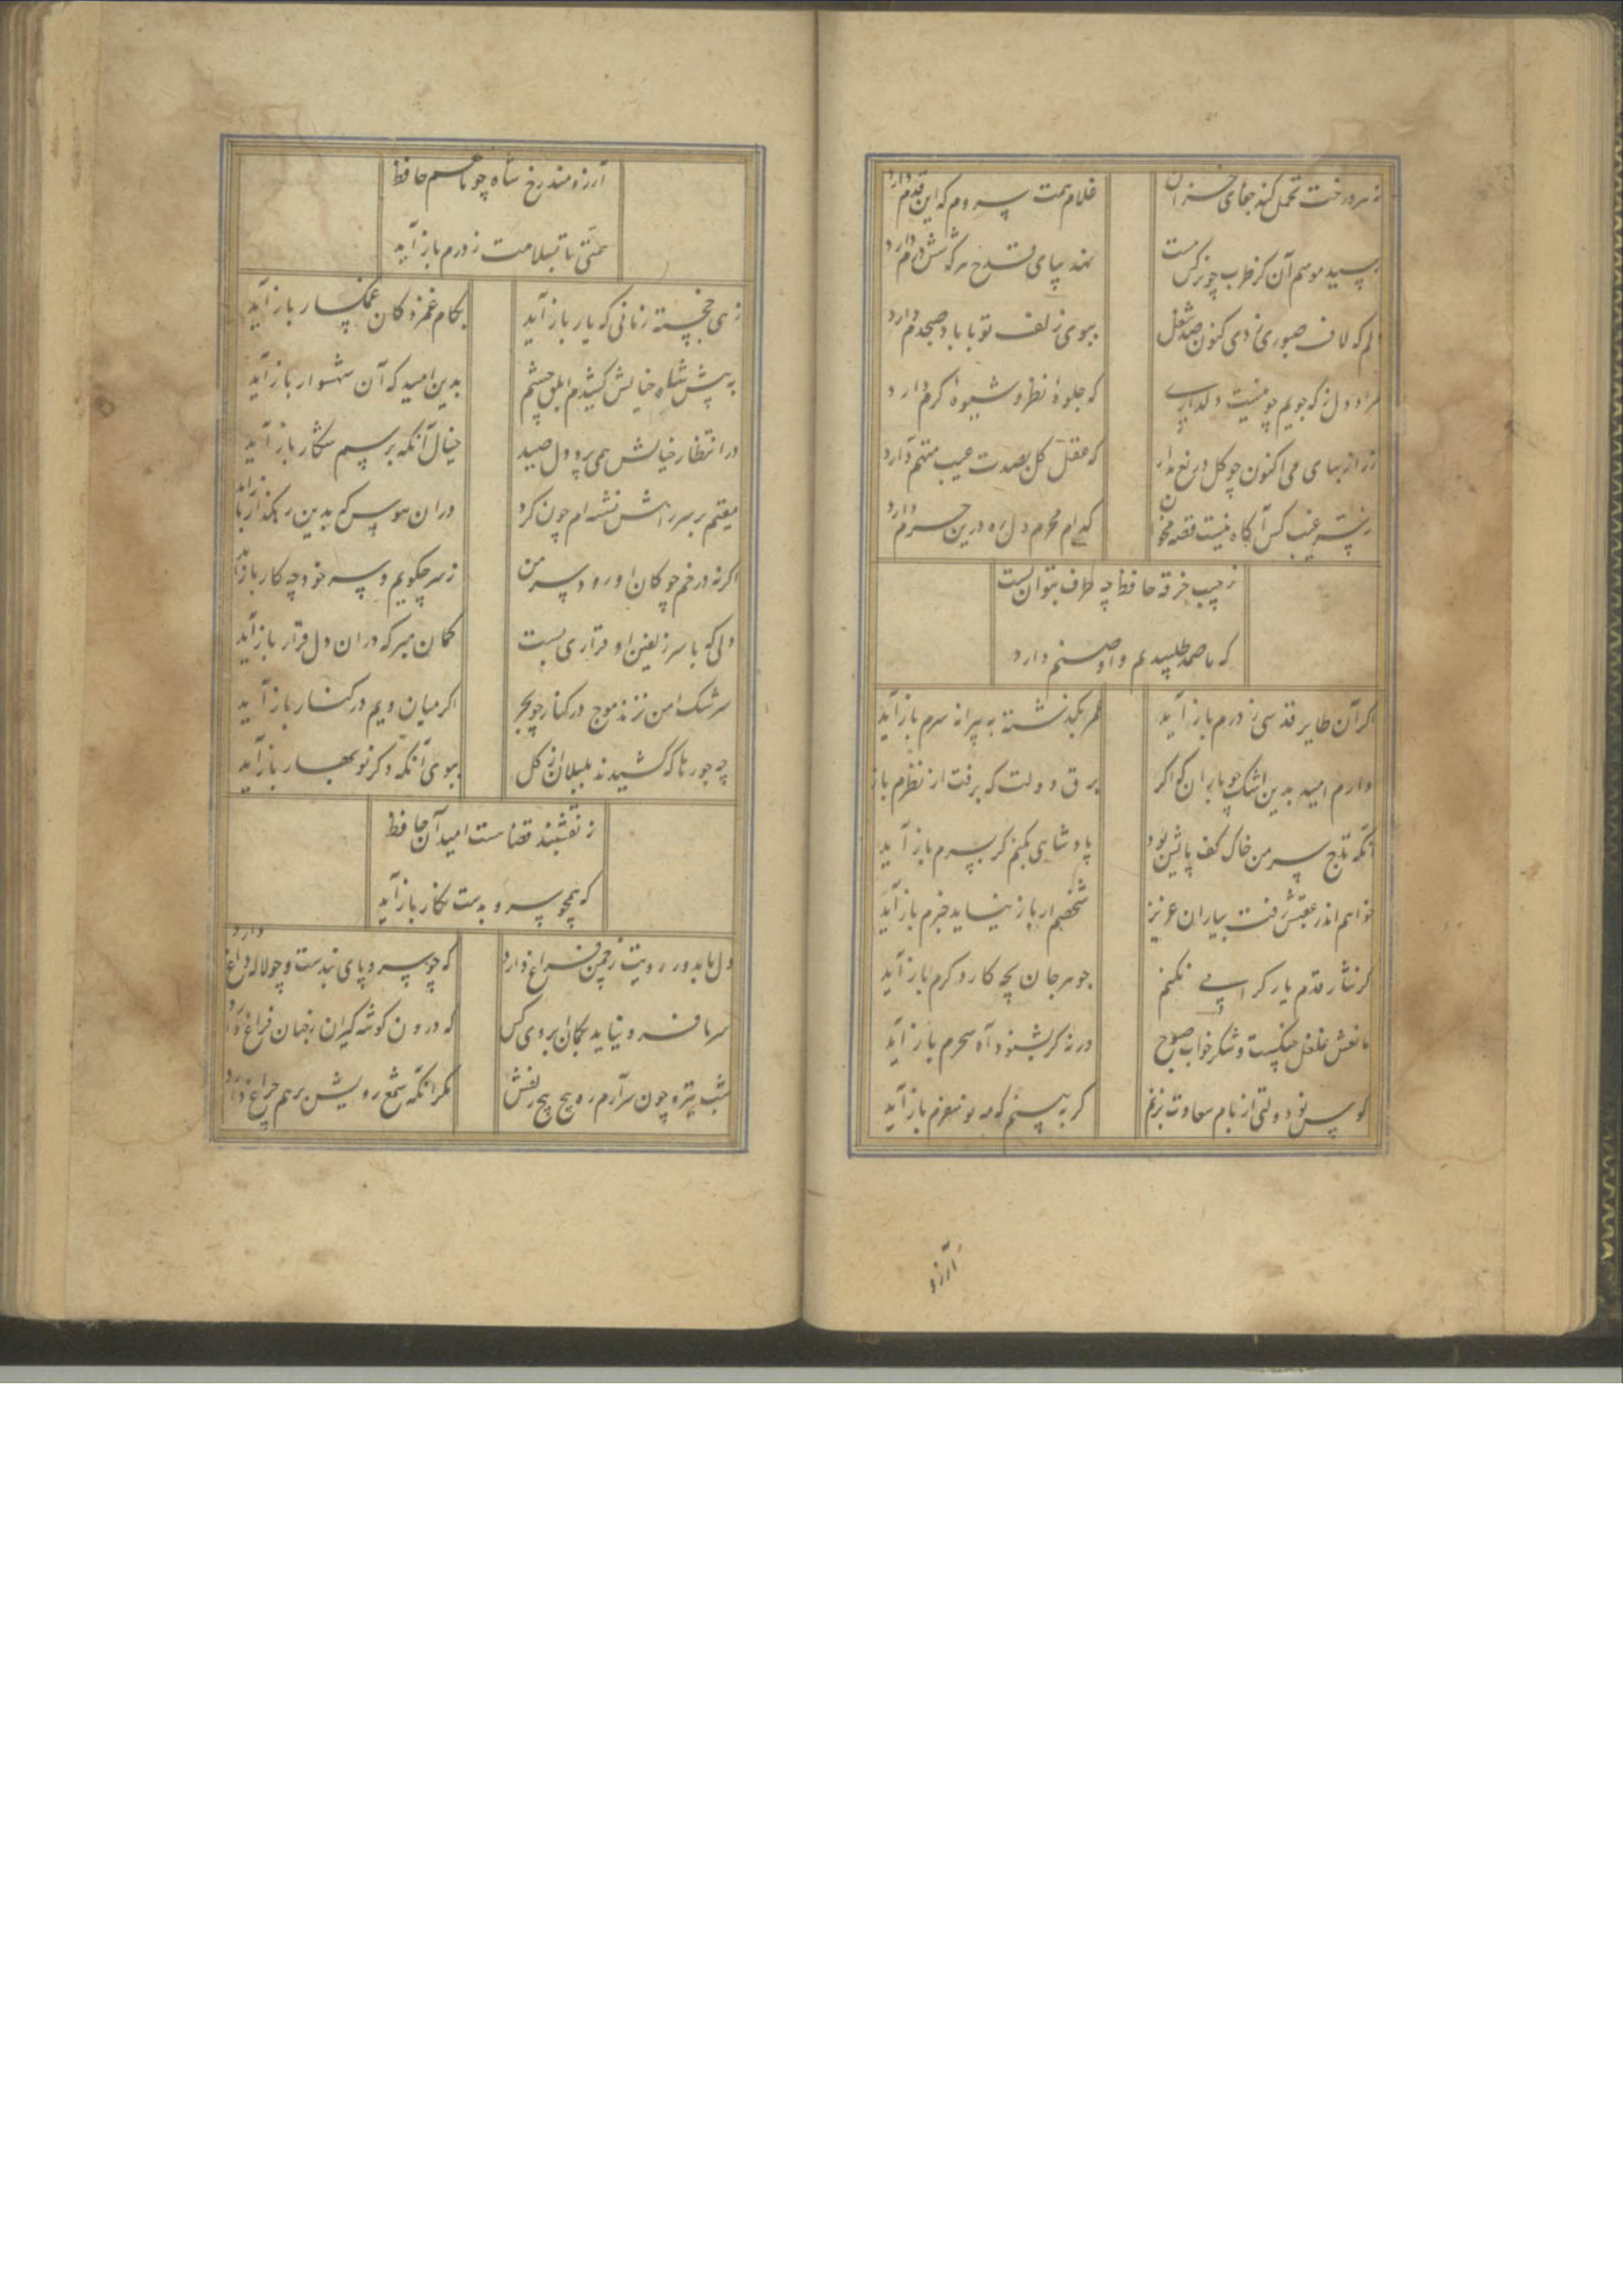 نه هر درخت تحمل کند جفای خزان
غلام همت سروم که این قدم دارد
رسید موسم آن کز طرب چو نرگس مست
نهد بپای قدح هر که شش درم دارد
دلم که لاف صبوری زدی کنون صد شغل
ببوی زلف تو با باد صبحدم دارد
مراد دل ز که جویم چو نیست دلداری
که جلوهٔ نظر و شیوهٔ کرم دارد
زر از بهای می اکنون چو کل دریغ مدار
که عقل کل بصدت عیب متهم دارد
ز سر غیب کس آکاه نیست قصه مخوان
کدام محرم دل ره درین حرم دارد
ز جیب خرقه حافظ چه طرف بتوان بست
که ما صمد طلبیدیم و او صنم دارد
اکر آن طایر قدسی ز درم باز آید
عمر بکذشته به پیرانه سرم باز آید
دارم امید بدین اشک چو باران که اکر
برق دولت که برفت از نظرم باز
آنکه تاج سر من خاک کف پایش بود
پادشاهی بکنم کر بسرم باز آید
خواهم اندر عقبش رفت بیاران عزیز
شخصم ار باز نیاید خبرم باز آید
کر نثار قدم یار کرامی نکنم
جوهر جان بچه کار دکرم باز آید
مانعش غلغل چنکست و شکر خواب صبوح
ورنه کر بشنود آه سحرم باز آید
کوس نو دولتی از بام سعادت بزنم
کر ببینم که مه نو سفرم باز آید
آرزو
آرزومند رخ شاه چو ماهم حافظ
همتی تا بسلامت ز درم باز آید
زهی خجسته زمانی که یار باز آید
بکام غمزدکان غمکسار باز آید
به پیش شاه خیالش کشیدم ابلق چشم
بدین امید که آن شهسوار باز آید
در انتظار خیالش همی پرد دل صید
خیال آنکه برسم شکار باز آید
مقیم بر سر راهش نشسته ام چون کرد
در ان هوس که بدین رهکذار باز آید
اکر نه در خم چوکان او رود سر من
ز سر چکویم و سر خود چه کار باز آید
دلی که با سر زلفین او قراری بست
کمان مبر که در ان دل قرار باز آید
سرشک من نزند موج در کنار چو بحر
اکر میان ویم در کنار باز آید
چه جورها که کشیدند بلبلان از کل
ببوی آنکه دکر نوبهار باز آید
ز نقشبند قضاست امید آن حافظ
که همچو سرو بدست نکار باز آید
دل ما بدور رویت ز چمن فراغ دارد
که چو سرو پای بندست و چو لاله داغ دارد
سر ما فرو نیاید بکمان ابروی کس
که درون کوشه کیران ز جهان فراغ دارد
شب تیره چون سر آرم ره پیچ پیچ زلفش
مکر آنکه شمع رویش برهم چراغ دارد